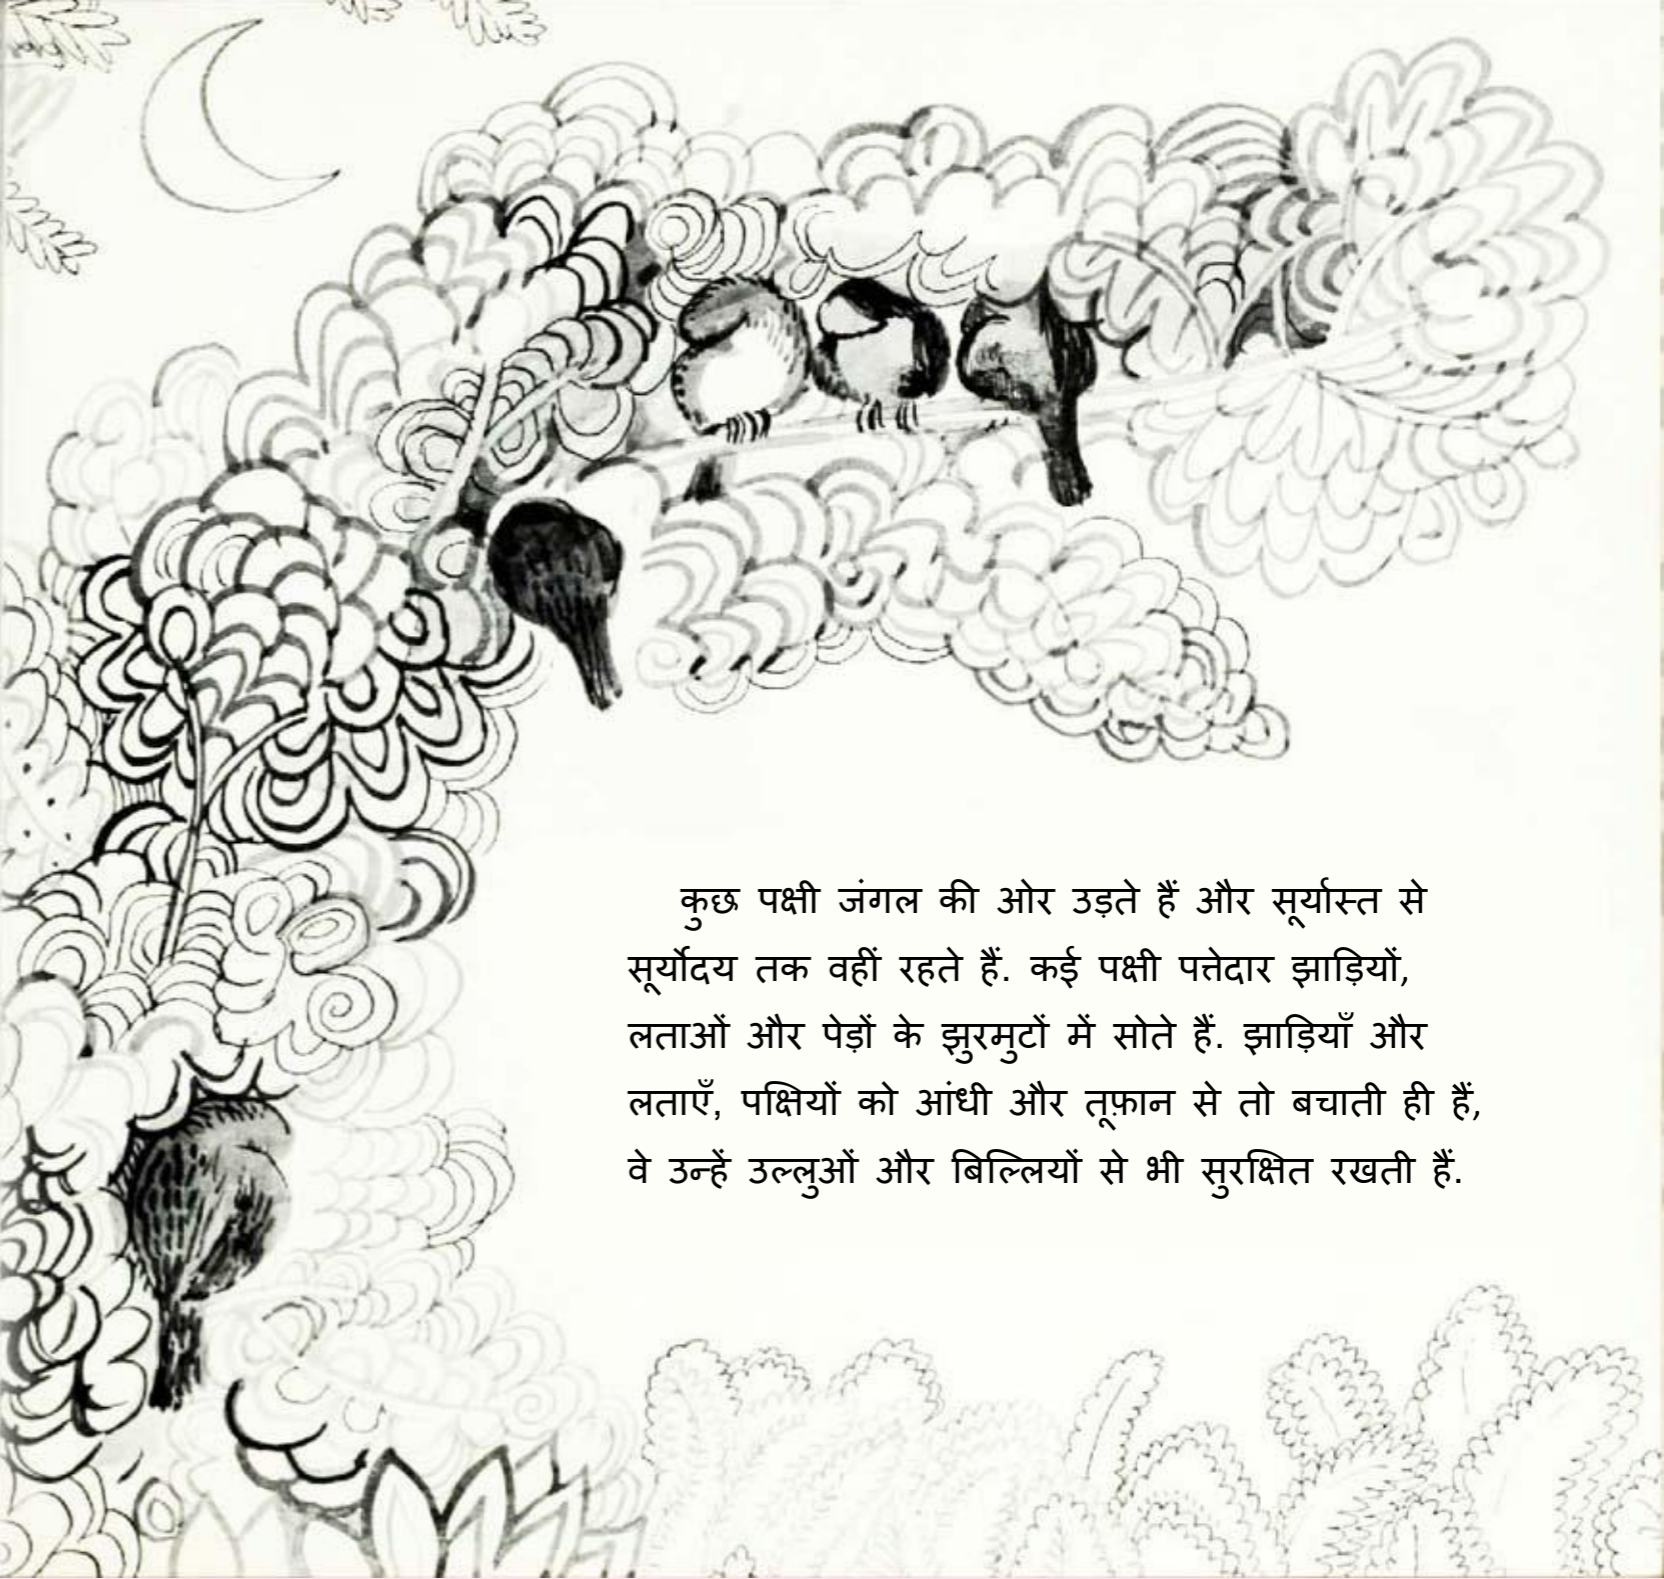 कुछ पक्षी जंगल की ओर उड़ते हैं और सूर्यास्त से
सूर्योदय तक वहीं रहते हैं. कई पक्षी पत्तेदार झाड़ियों,
लताओं और पेड़ों के झुरमुटों में सोते हैं. झाड़ियाँ और
लताएँ, पक्षियों को आंधी और तूफ़ान से तो बचाती ही हैं,
वे उन्हें उल्लुओं और बिल्लियों से भी सुरक्षित रखती हैं.